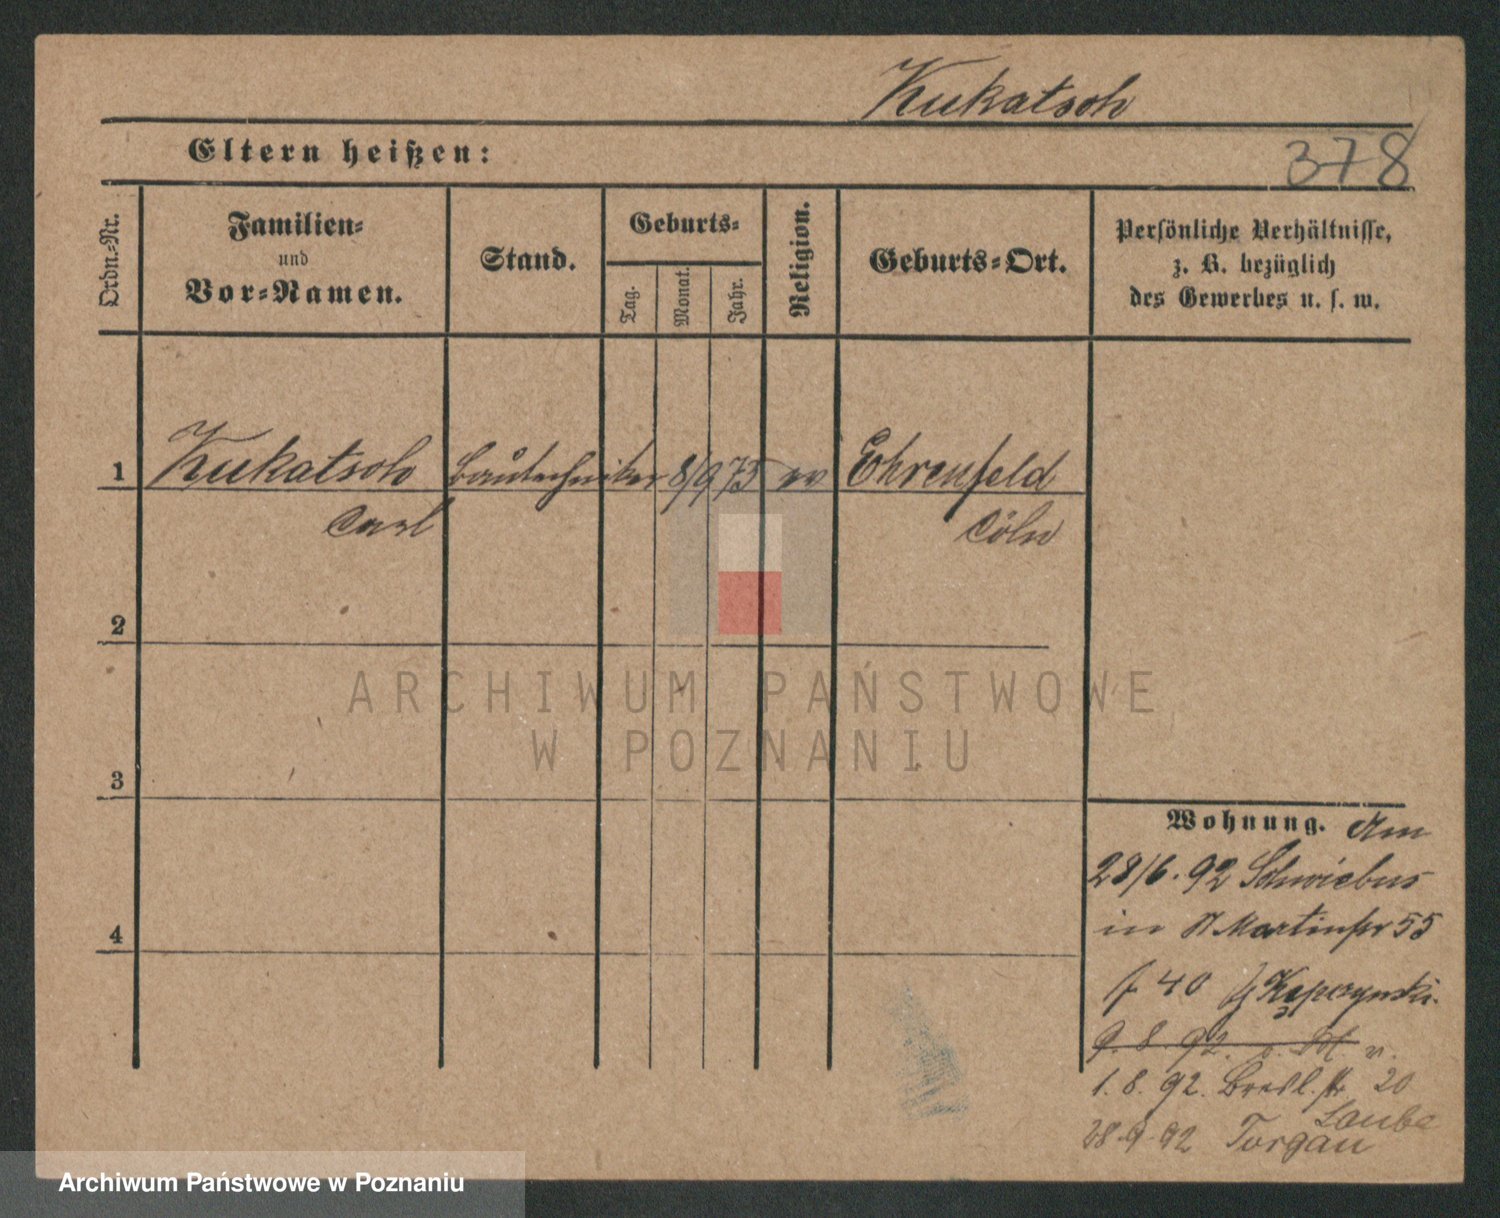 Kukatsch
Eltern heißen:
378
Ordn.-Nr.
Familien-
und
Vor-Namen.
Stand.
Geburts-
Tag.
Monat.
Jahr.
Religion.
Geburts-Ort.
Persönliche Verhältnisse,
z. B. bezüglich
des Gewerbes u. s. w.
1 Kukatsch Bautechniker 8/9 75 ev Ehrenfeld
Carl Cöln
2
3
4
ARCHIWUM PAŃSTWOWE
W POZNANIU
Wohnung. Am
28/6. 92 Schwiebus
in St Martinstr 55
f 40 Kapczynski.
9. 8. 92.
1. 8. 92. Bresl. str 20
Laube
28. 9. 92 Torgau
Archiwum Państwowe w Poznaniu